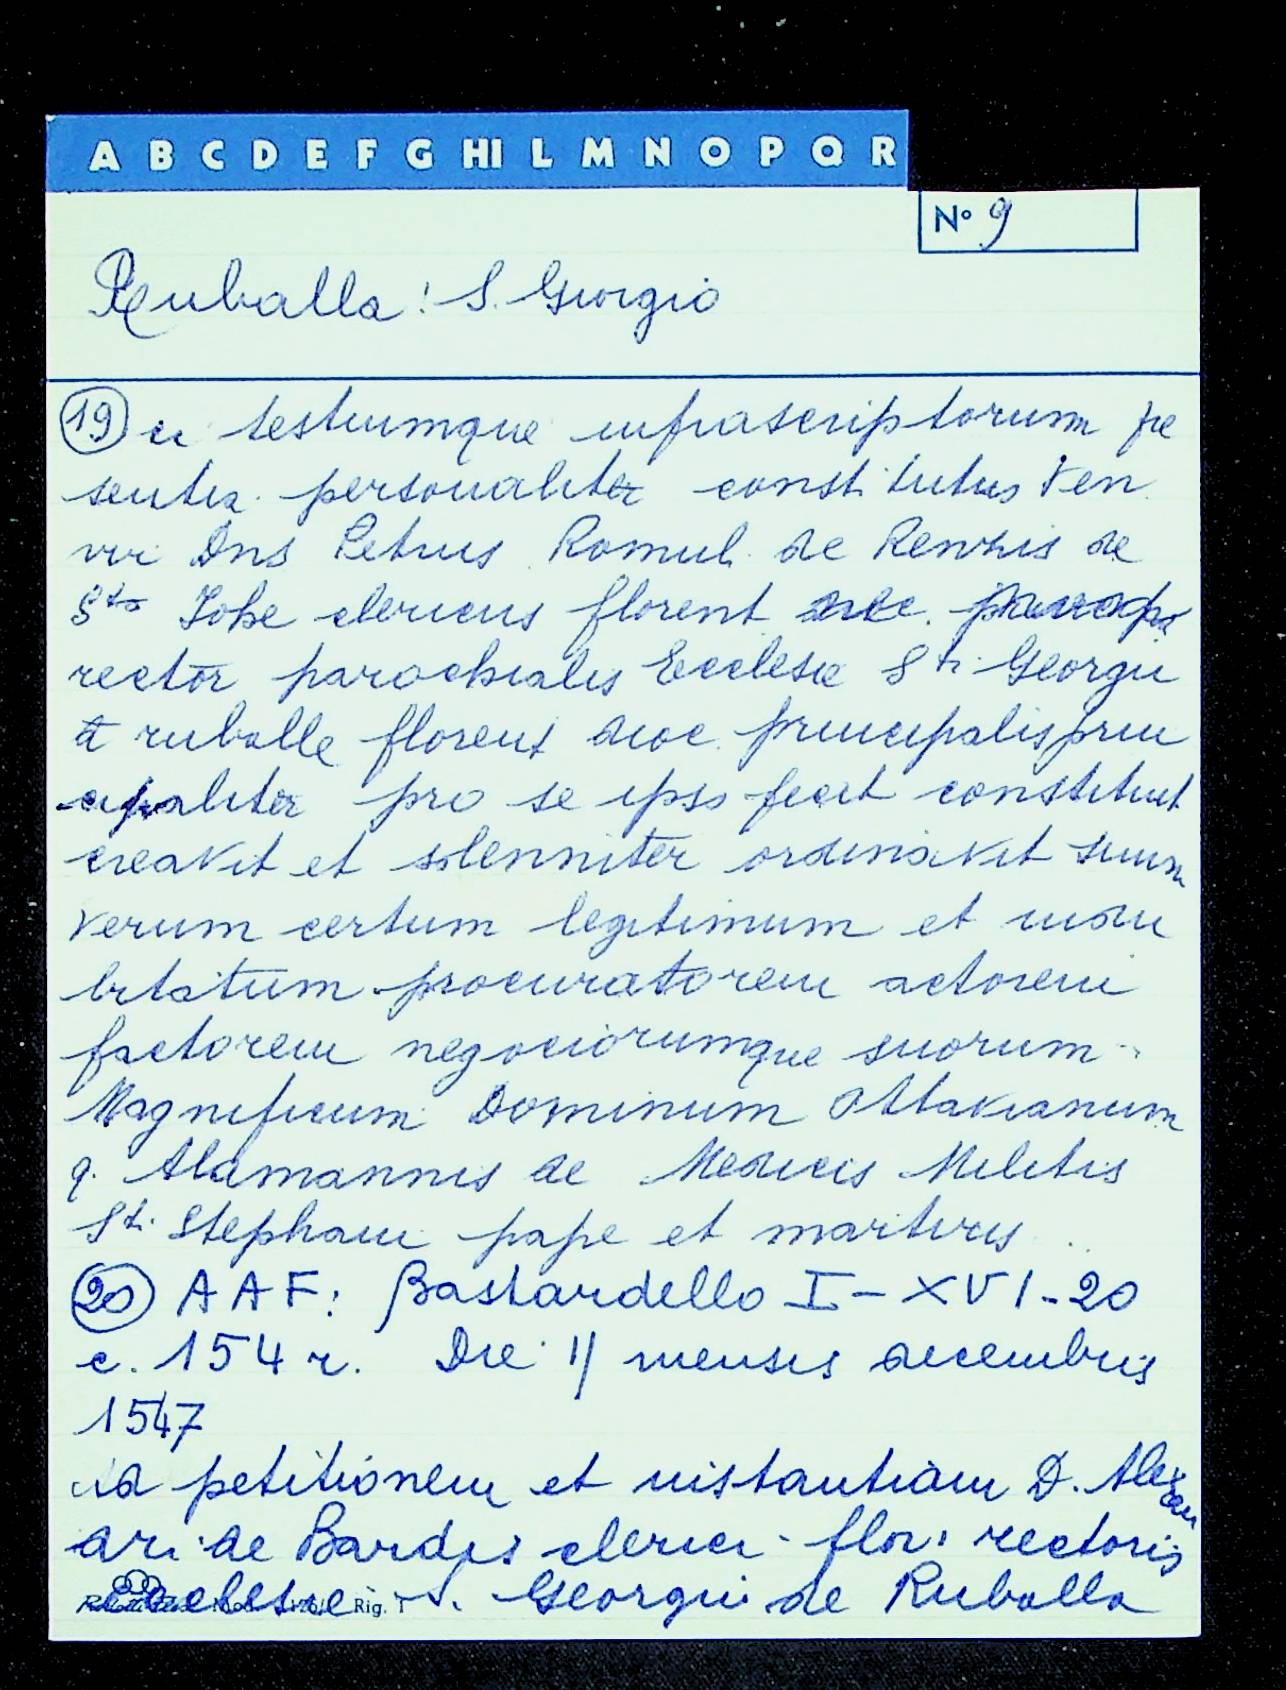 A B C D E F G HI L M N O P Q R
N° 9
Ruballa: S. Giorgio
19 ci testiumque infrascriptorum pre
sentia personaliter constitutus Ven
vir Dns Petrus Romul. de Renzis de
Sto Johe clericus florent
rector parochialis Ecclesie Sti Georgii
a ruballe florent dioc. principalis prin
cipaliter pro se ipso fecit constituit
creavit et solenniter ordinavit suum
verum certum legitimum et indu
bitatum procuratorem actorem
factorem negociorumque suorum
Magnificum Dominum Ottavianum
q. Alamannis de Medicis Militis
Sti Stephani pape et martiris ..
20 AAF: Bastardello I-XVI-20
c. 154 r. Die 11 mensis decembris
1547
Ad petitionem et instantiam D. Alexan
dri de Bardis clerici flor. rectoris
Ecclesie S. Georgii de Ruballa
Rig. 1